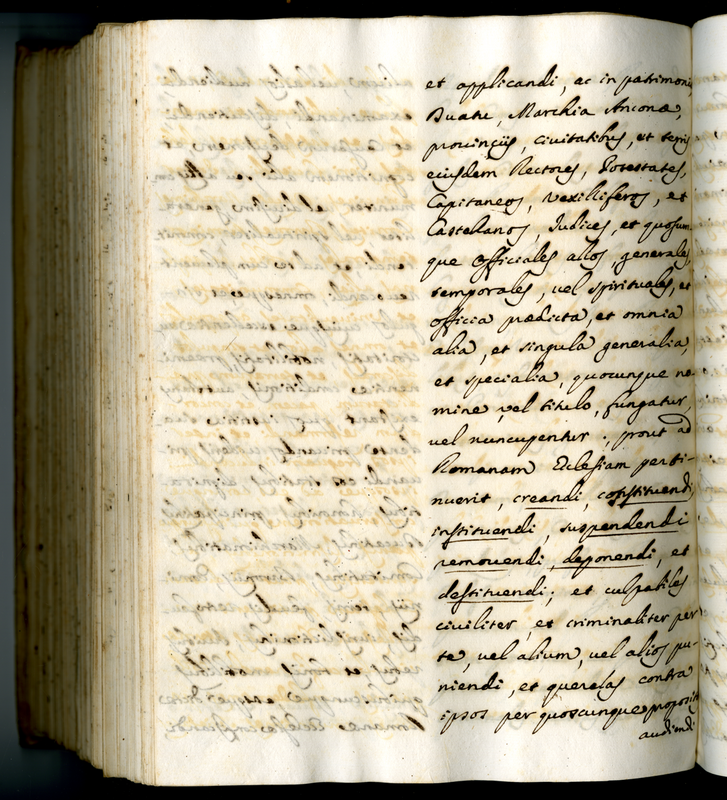 et applicandi, ac in patrimonio,
Ducatu, Marchia Anconæ,
prouincijs, ciuitatibus, et terris
eiusdem Rectores, Potestates,
Capitaneos, Vexilliferos, et
Castellanos, Iudices, et quosum-
que officiales alios, generales,
temporales, vel spirituales, et
officia prædicta, et omnia
alia, et singula generalia,
et specialia, quocunque no-
mine vel titulo, fungatur,
vel nuncupentur, prout ad
Romanam Eclesiam perti-
nuerit, creandi, constituendi
instituendi, suspendendi
remouendi, deponendi, et
destituendi; et culpabiles
ciuiliter, et criminaliter per
te, vel alium, vel alios pu-
niendi, et querelas contra
ipsos per quoscunque propositas
audiendi